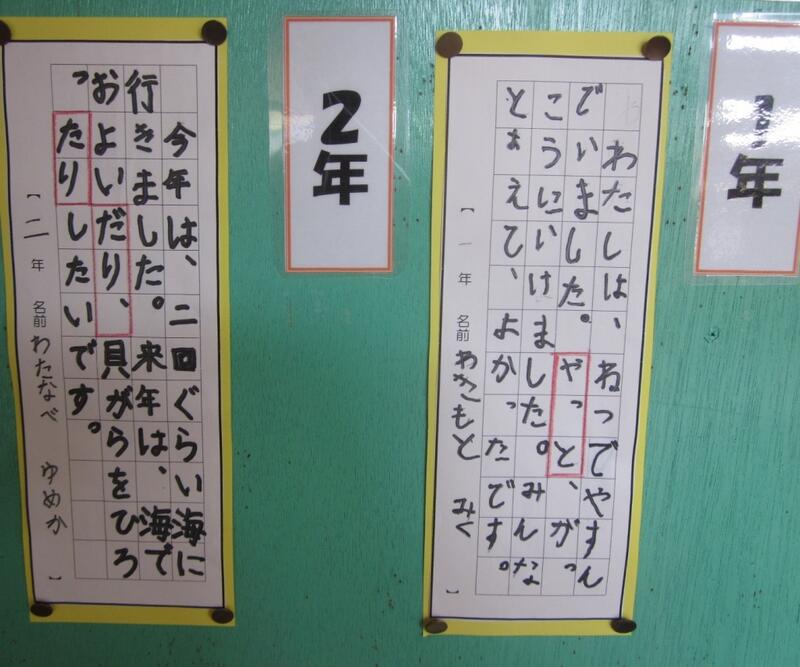 1年
わたしは、ねつでやすん
でいました。やっと、がっ
こうにいけました。みんな
とあえて、よかったです。
【 一年 名前 わきもと みく 】
2年
今年は、二回ぐらい海に
行きました。来年は、海で
およいだり、貝がらをひろ
ったりしたいです。
【 二年 名前 わたなべ ゆめか 】